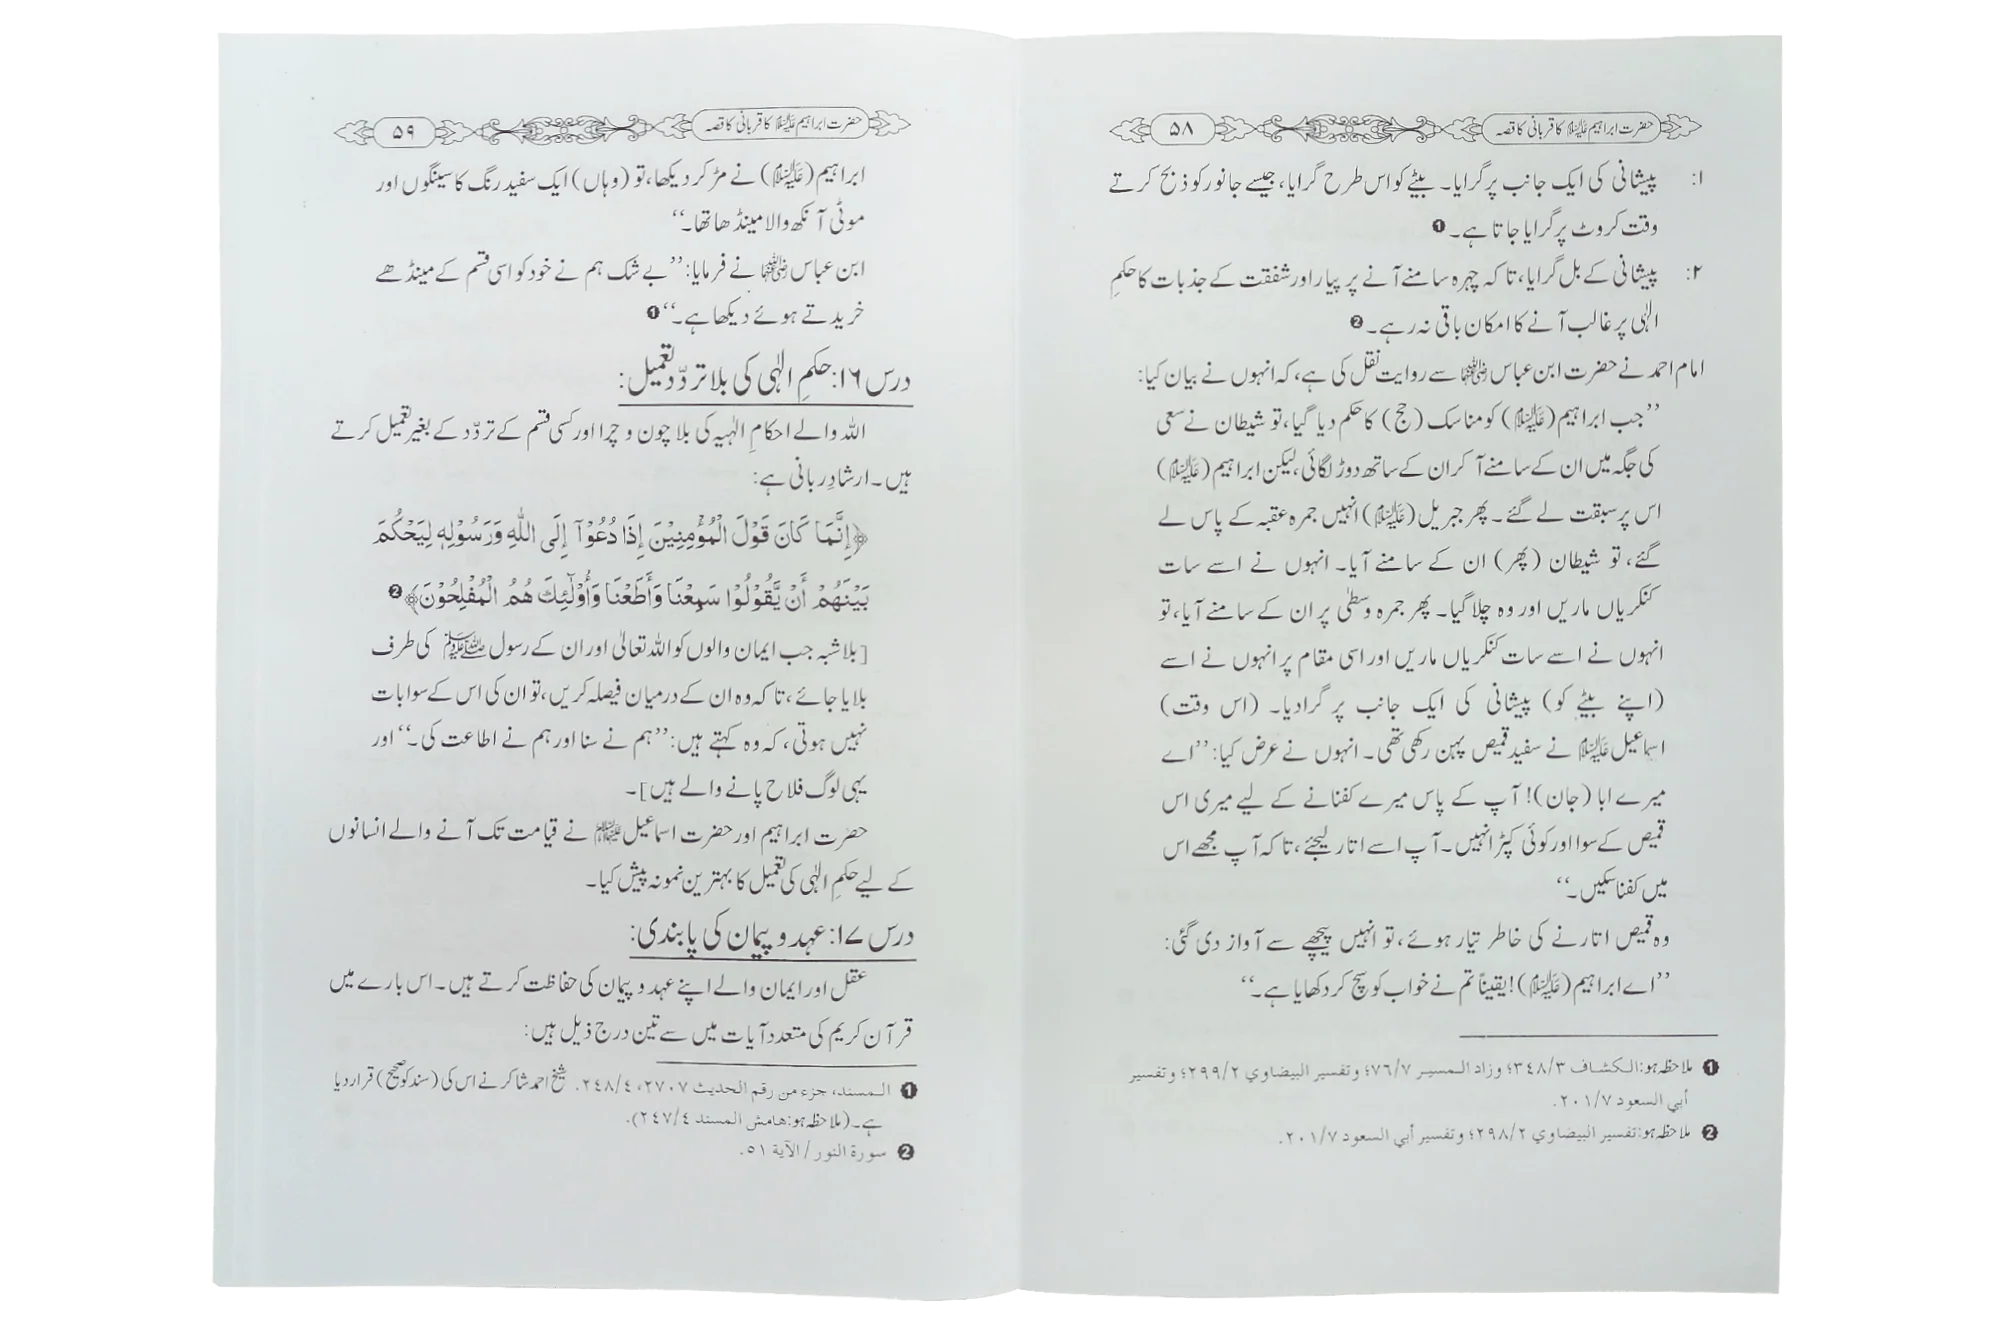 حضرت ابراہیم علیہ السلام کا قربانی کا قصہ
۵۸
۱: پیشانی کی ایک جانب پر گرایا۔ بیٹے کو اس طرح گرایا، جیسے جانور کو ذبح کرتے
وقت کروٹ پر گرایا جاتا ہے۔ ❶
۲: پیشانی کے بل گرایا، تاکہ چہرہ سامنے آنے پر پیار اور شفقت کے جذبات کا حکمِ
الٰہی پر غالب آنے کا امکان باقی نہ رہے۔ ❷
امام احمد نے حضرت ابن عباس رضی اللہ عنہما سے روایت نقل کی ہے، کہ انہوں نے بیان کیا:
’’جب ابراہیم (علیہ السلام) کو مناسک (حج) کا حکم دیا گیا، تو شیطان نے سعی
کی جگہ میں ان کے سامنے آ کر ان کے ساتھ دوڑ لگائی، لیکن ابراہیم (علیہ السلام)
اس پر سبقت لے گئے۔ پھر جبریل (علیہ السلام) انہیں جمرہ عقبہ کے پاس لے
گئے، تو شیطان (پھر) ان کے سامنے آیا۔ انہوں نے اسے سات
کنکریاں ماریں اور وہ چلا گیا۔ پھر جمرہ وسطیٰ پر ان کے سامنے آیا، تو
انہوں نے اسے سات کنکریاں ماریں اور اسی مقام پر انہوں نے اسے
(اپنے بیٹے کو) پیشانی کی ایک جانب پر گرادیا۔ (اس وقت)
اسماعیل علیہ السلام نے سفید قمیص پہن رکھی تھی۔ انہوں نے عرض کیا: ’’اے
میرے ابا (جان)! آپ کے پاس میرے کفنانے کے لیے میری اس
قمیص کے سوا اور کوئی کپڑا نہیں۔ آپ اسے اتار لیجئے، تاکہ آپ مجھے اس
میں کفنا سکیں۔‘‘
وہ قمیص اتارنے کی خاطر تیار ہوئے، تو انہیں پیچھے سے آواز دی گئی:
’’اے ابراہیم (علیہ السلام)! یقیناً تم نے خواب کو سچ کر دکھایا ہے۔‘‘
❶ ملاحظہ ہو: الکشاف ۳۴۸/۳؛ وزاد المسیر ۷۶/۷؛ وتفسیر البیضاوي ۲۹۹/۲؛ وتفسیر
أبي السعود ۲۰۱/۷.
❷ ملاحظہ ہو: تفسیر البیضاوي ۲۹۸/۲؛ وتفسیر أبي السعود ۲۰۱/۷.
حضرت ابراہیم علیہ السلام کا قربانی کا قصہ
۵۹
ابراہیم (علیہ السلام) نے مڑ کر دیکھا، تو (وہاں) ایک سفید رنگ کا سینگوں اور
موٹی آنکھ والا مینڈھا تھا۔‘‘
ابن عباس رضی اللہ عنہما نے فرمایا: ’’بے شک ہم نے خود کو اسی قسم کے مینڈھے
خریدتے ہوئے دیکھا ہے۔‘‘ ❶
درس ۱۶: حکمِ الٰہی کی بلا تردّد تعمیل:
اللہ والے احکامِ الٰہیہ کی بلا چون و چرا اور کسی قسم کے تردّد کے بغیر تعمیل کرتے
ہیں۔ ارشادِ ربانی ہے:
﴿إِنَّمَا كَانَ قَوْلَ الْمُؤْمِنِيْنَ إِذَا دُعُوْآ إِلَى اللّٰهِ وَرَسُوْلِهٖ لِيَحْكُمَ
بَيْنَهُمْ أَنْ يَّقُوْلُوْا سَمِعْنَا وَأَطَعْنَا وَأُوْلٰٓئِكَ هُمُ الْمُفْلِحُوْنَ﴾ ❷
[بلاشبہ جب ایمان والوں کو اللہ تعالیٰ اور ان کے رسول صلی اللہ علیہ وسلم کی طرف
بلایا جائے، تاکہ وہ ان کے درمیان فیصلہ کریں، تو ان کی اس کے سوا بات
نہیں ہوتی، کہ وہ کہتے ہیں: ’’ہم نے سنا اور ہم نے اطاعت کی۔‘‘ اور
یہی لوگ فلاح پانے والے ہیں]۔
حضرت ابراہیم اور حضرت اسماعیل علیہما السلام نے قیامت تک آنے والے انسانوں
کے لیے حکمِ الٰہی کی تعمیل کا بہترین نمونہ پیش کیا۔
درس ۱۷: عہد و پیمان کی پابندی:
عقل اور ایمان والے اپنے عہد و پیمان کی حفاظت کرتے ہیں۔ اس بارے میں
قرآن کریم کی متعدد آیات میں سے تین درج ذیل ہیں:
❶ المسند، جزء من رقم الحدیث ۲۷۰۷، ۲۴۸/۴. شیخ احمد شاکر نے اس کی (سند کو صحیح) قرار دیا
ہے۔ (ملاحظہ ہو: هامش المسند ۲۴۷/۴).
❷ سورة النور / الآیة ۵۱.